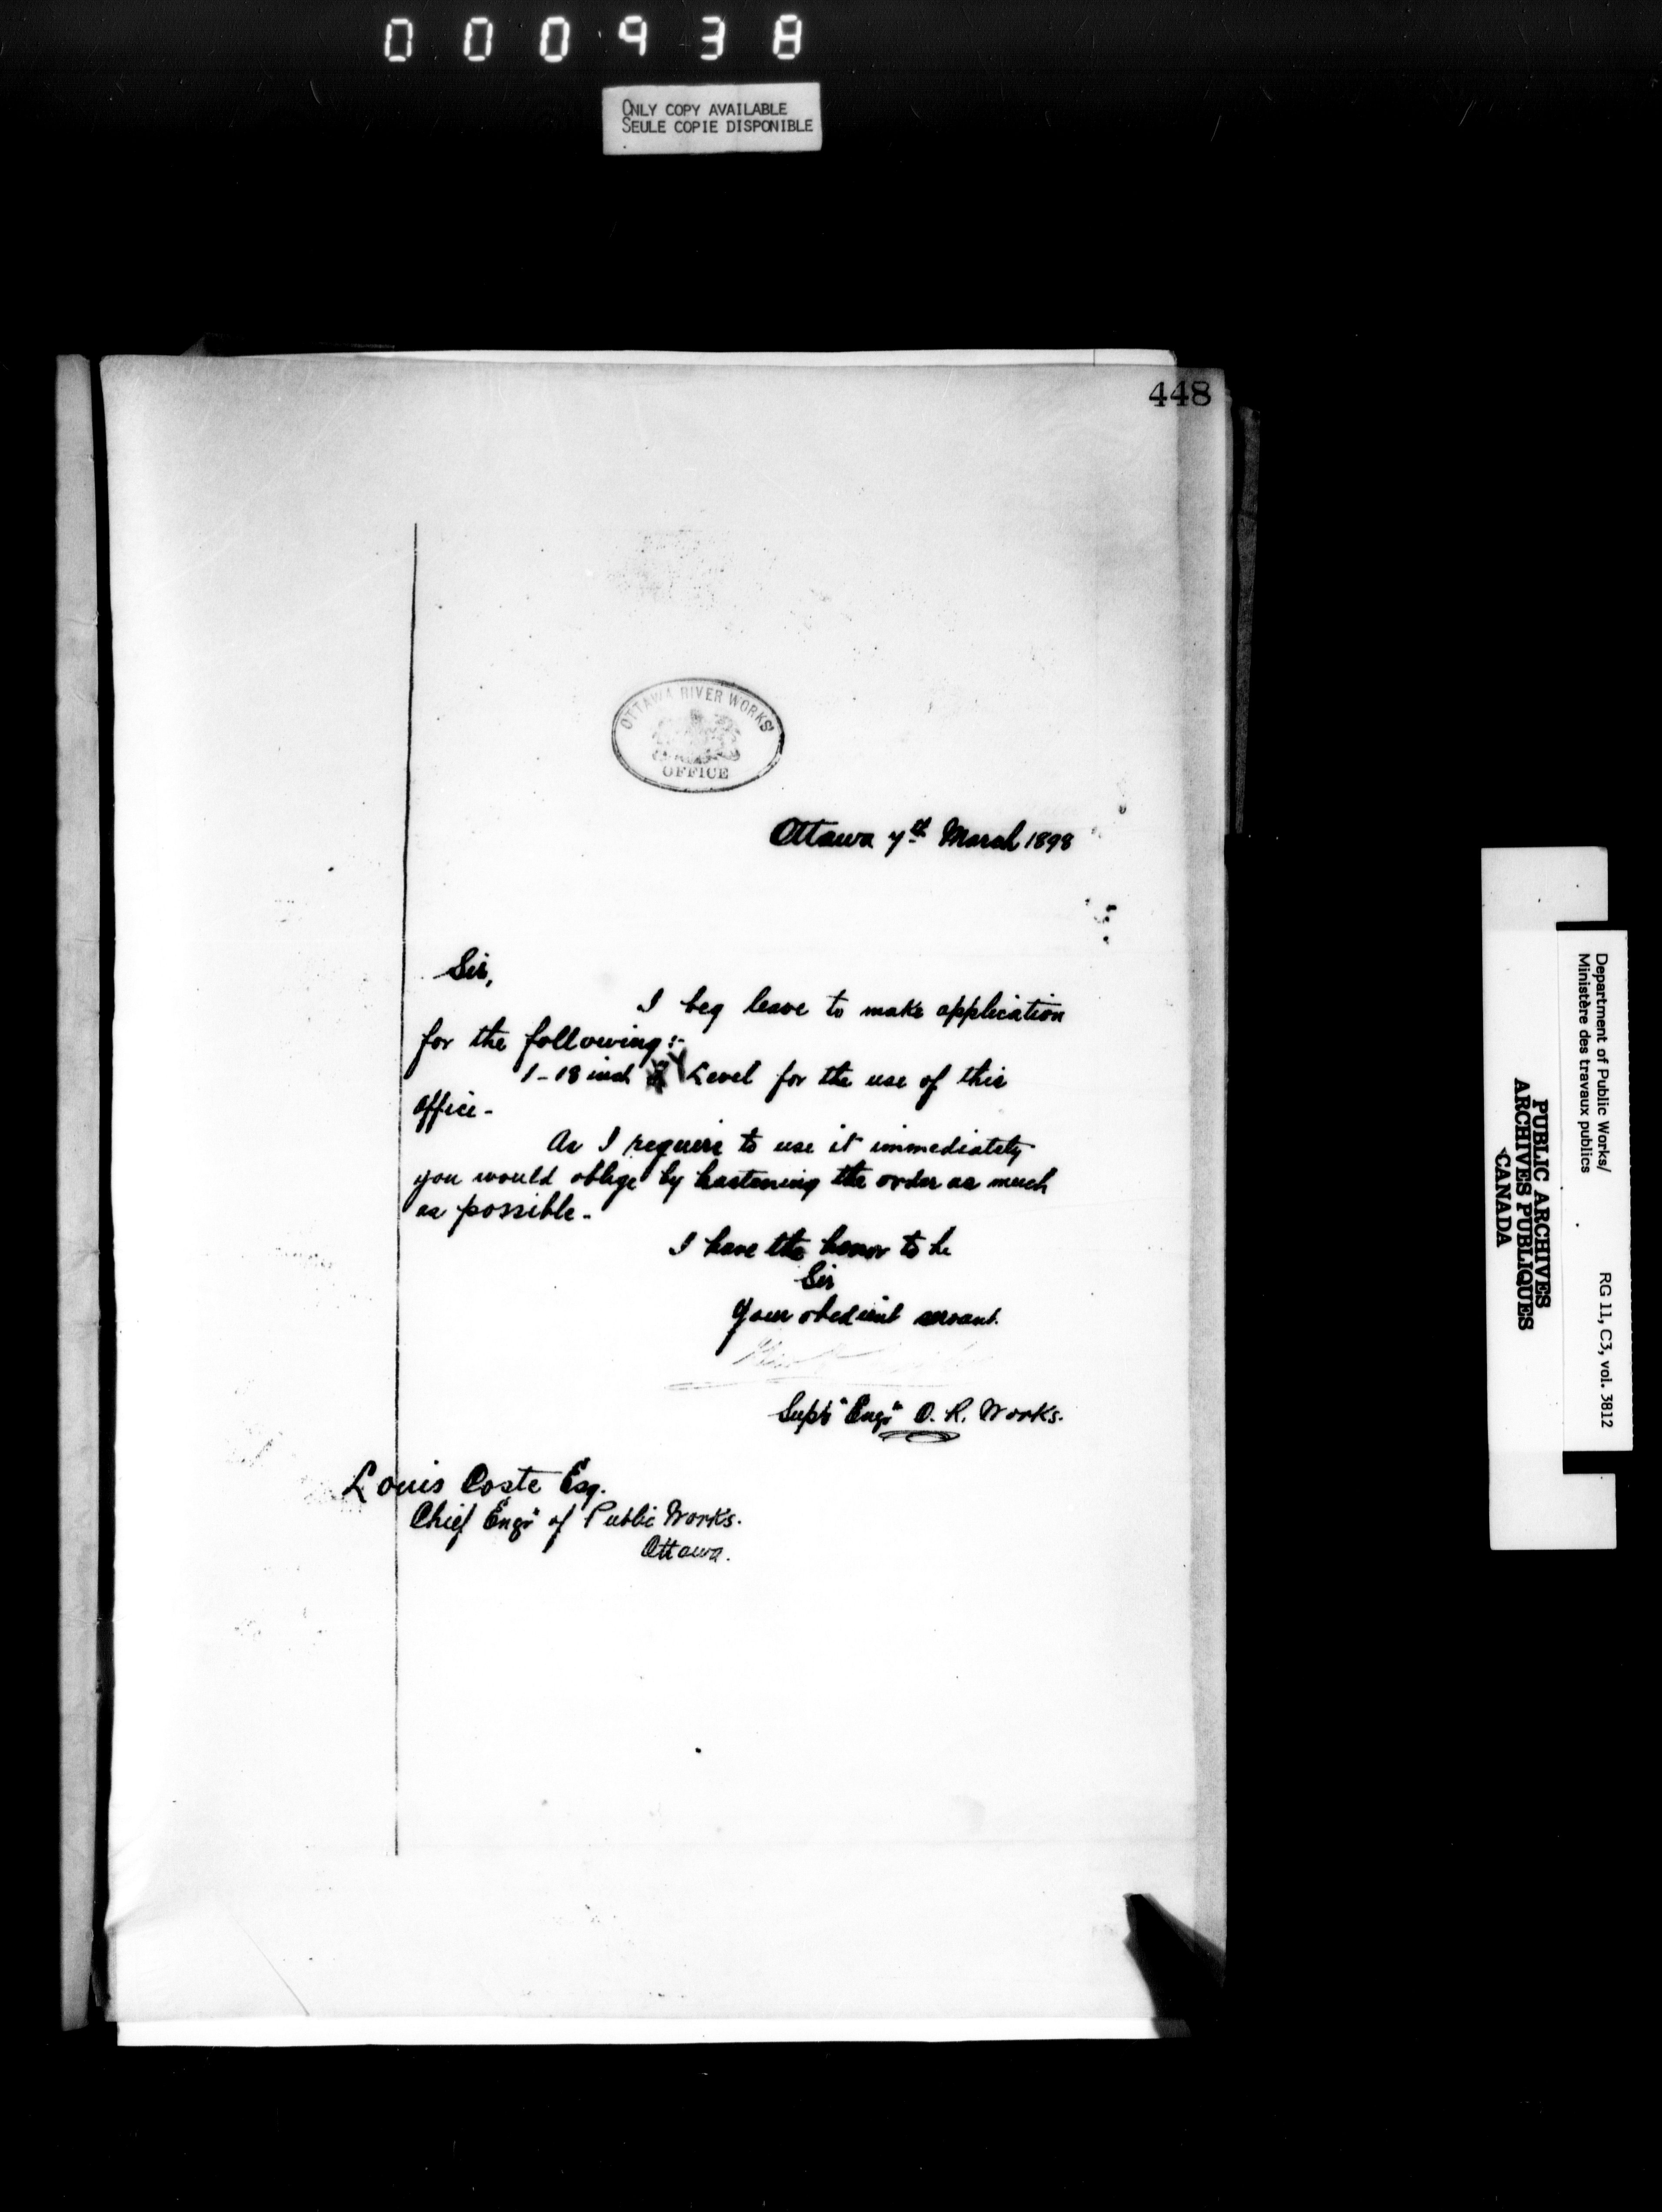 000938
ONLY COPY AVAILABLE
SEULE COPIE DISPONIBLE
448
OTTAWA RIVER WORKS'
OFFICE
Ottawa 7th March 1898
Sir,
I beg leave to make application
for the following:-
1-18 inch Y Level for the use of this
office-
As I require to use it immediately
you would oblige by hastening the order as much
as possible-
I have the honor to be
Sir
Your obedient servant.
Supt Engr O. R. Works.
Louis Coste Esq.
Chief Engr of Public Works.
Ottawa.
Department of Public Works/
Ministère des travaux publics
RG 11, C3, vol. 3812
PUBLIC ARCHIVES
ARCHIVES PUBLIQUES
CANADA